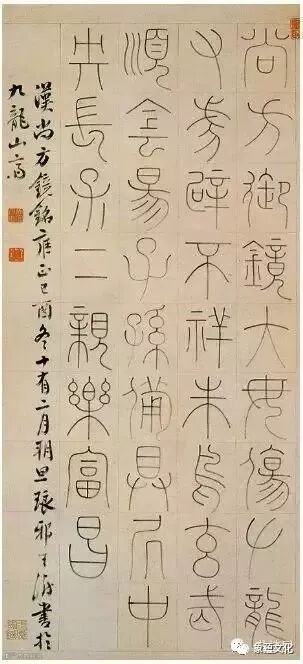 尚方御鏡大毋傷𠂇龍
又虎辟不祥朱鳥玄武
順侌昜子孫備具凥中
央長保二親樂富昌
漢尚方鏡銘雍正己酉冬十有二月朔旦琅邪王澍書於
九龍山齋
文化